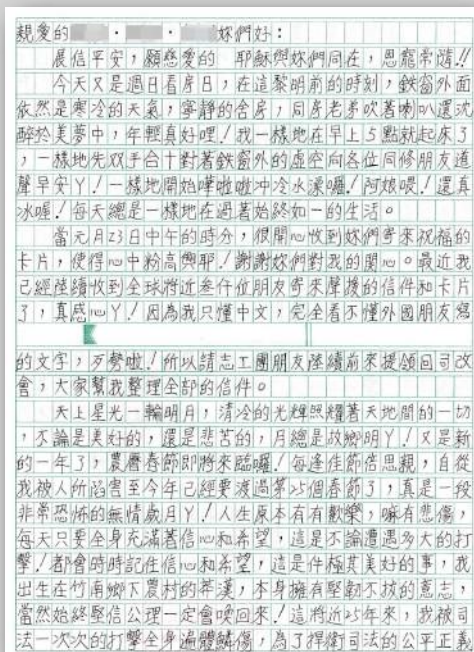 親愛的 · · 妳們好：
展信平安，願慈愛的 耶穌與妳們同在，恩寵常隨！！
今天又是週日看房日，在這黎明前的時刻，鉄窗外面
依然是寒冷的天氣，寧靜的舍房，同房老弟吹著喇叭還沉
醉於美夢中，年輕真好哩！我一樣地在早上5點就起床了
，一樣地先双手合十對著鉄窗外的虛空向各位同修朋友道
聲早安丫！一樣地開始嘩啦啦冲冷水澡囉！阿娘喂！還真
冰喔！每天總是一樣地在過著始終如一的生活。
當元月23日中午的時分，很開心收到妳們寄來祝福的
卡片，使得心中粉高興耶！謝謝妳們對我的関心。最近我
已經陸續收到全球將近叁仟位朋友寄來聲援的信件和卡片
了，真感心丫！因為我只懂中文，完全看不懂外國朋友寫
的文字，歹勢啦！所以請志工團朋友陸續前來提領回司改
會，大家幫我整理全部的信件。
天上星光一輪明月，清冷的光輝照耀著天地間的一切
，不論是美好的，還是悲苦的，月總是故鄉明丫！又是新
的一年了，農曆春節即將來臨囉！每逢佳節倍思親，自從
我被人所陷害至今年已經要渡過第25個春節了，真是一段
非常恐怖的無情歲月丫！人生原本有有歡樂，嘛有悲傷，
每天只要全身充滿著信心和希望，這是不論遭遇多大的打
擊！都會時時記住信心和希望，這是件極其美好的事，我
出生在竹南鄉下農村的莽漢，本身擁有堅韌不拔的意志，
當然始終堅信公理一定會喚回來！這將近25年來，我被司
法一次次的打擊全身遍體鱗傷，為了捍衛司法的公平正義